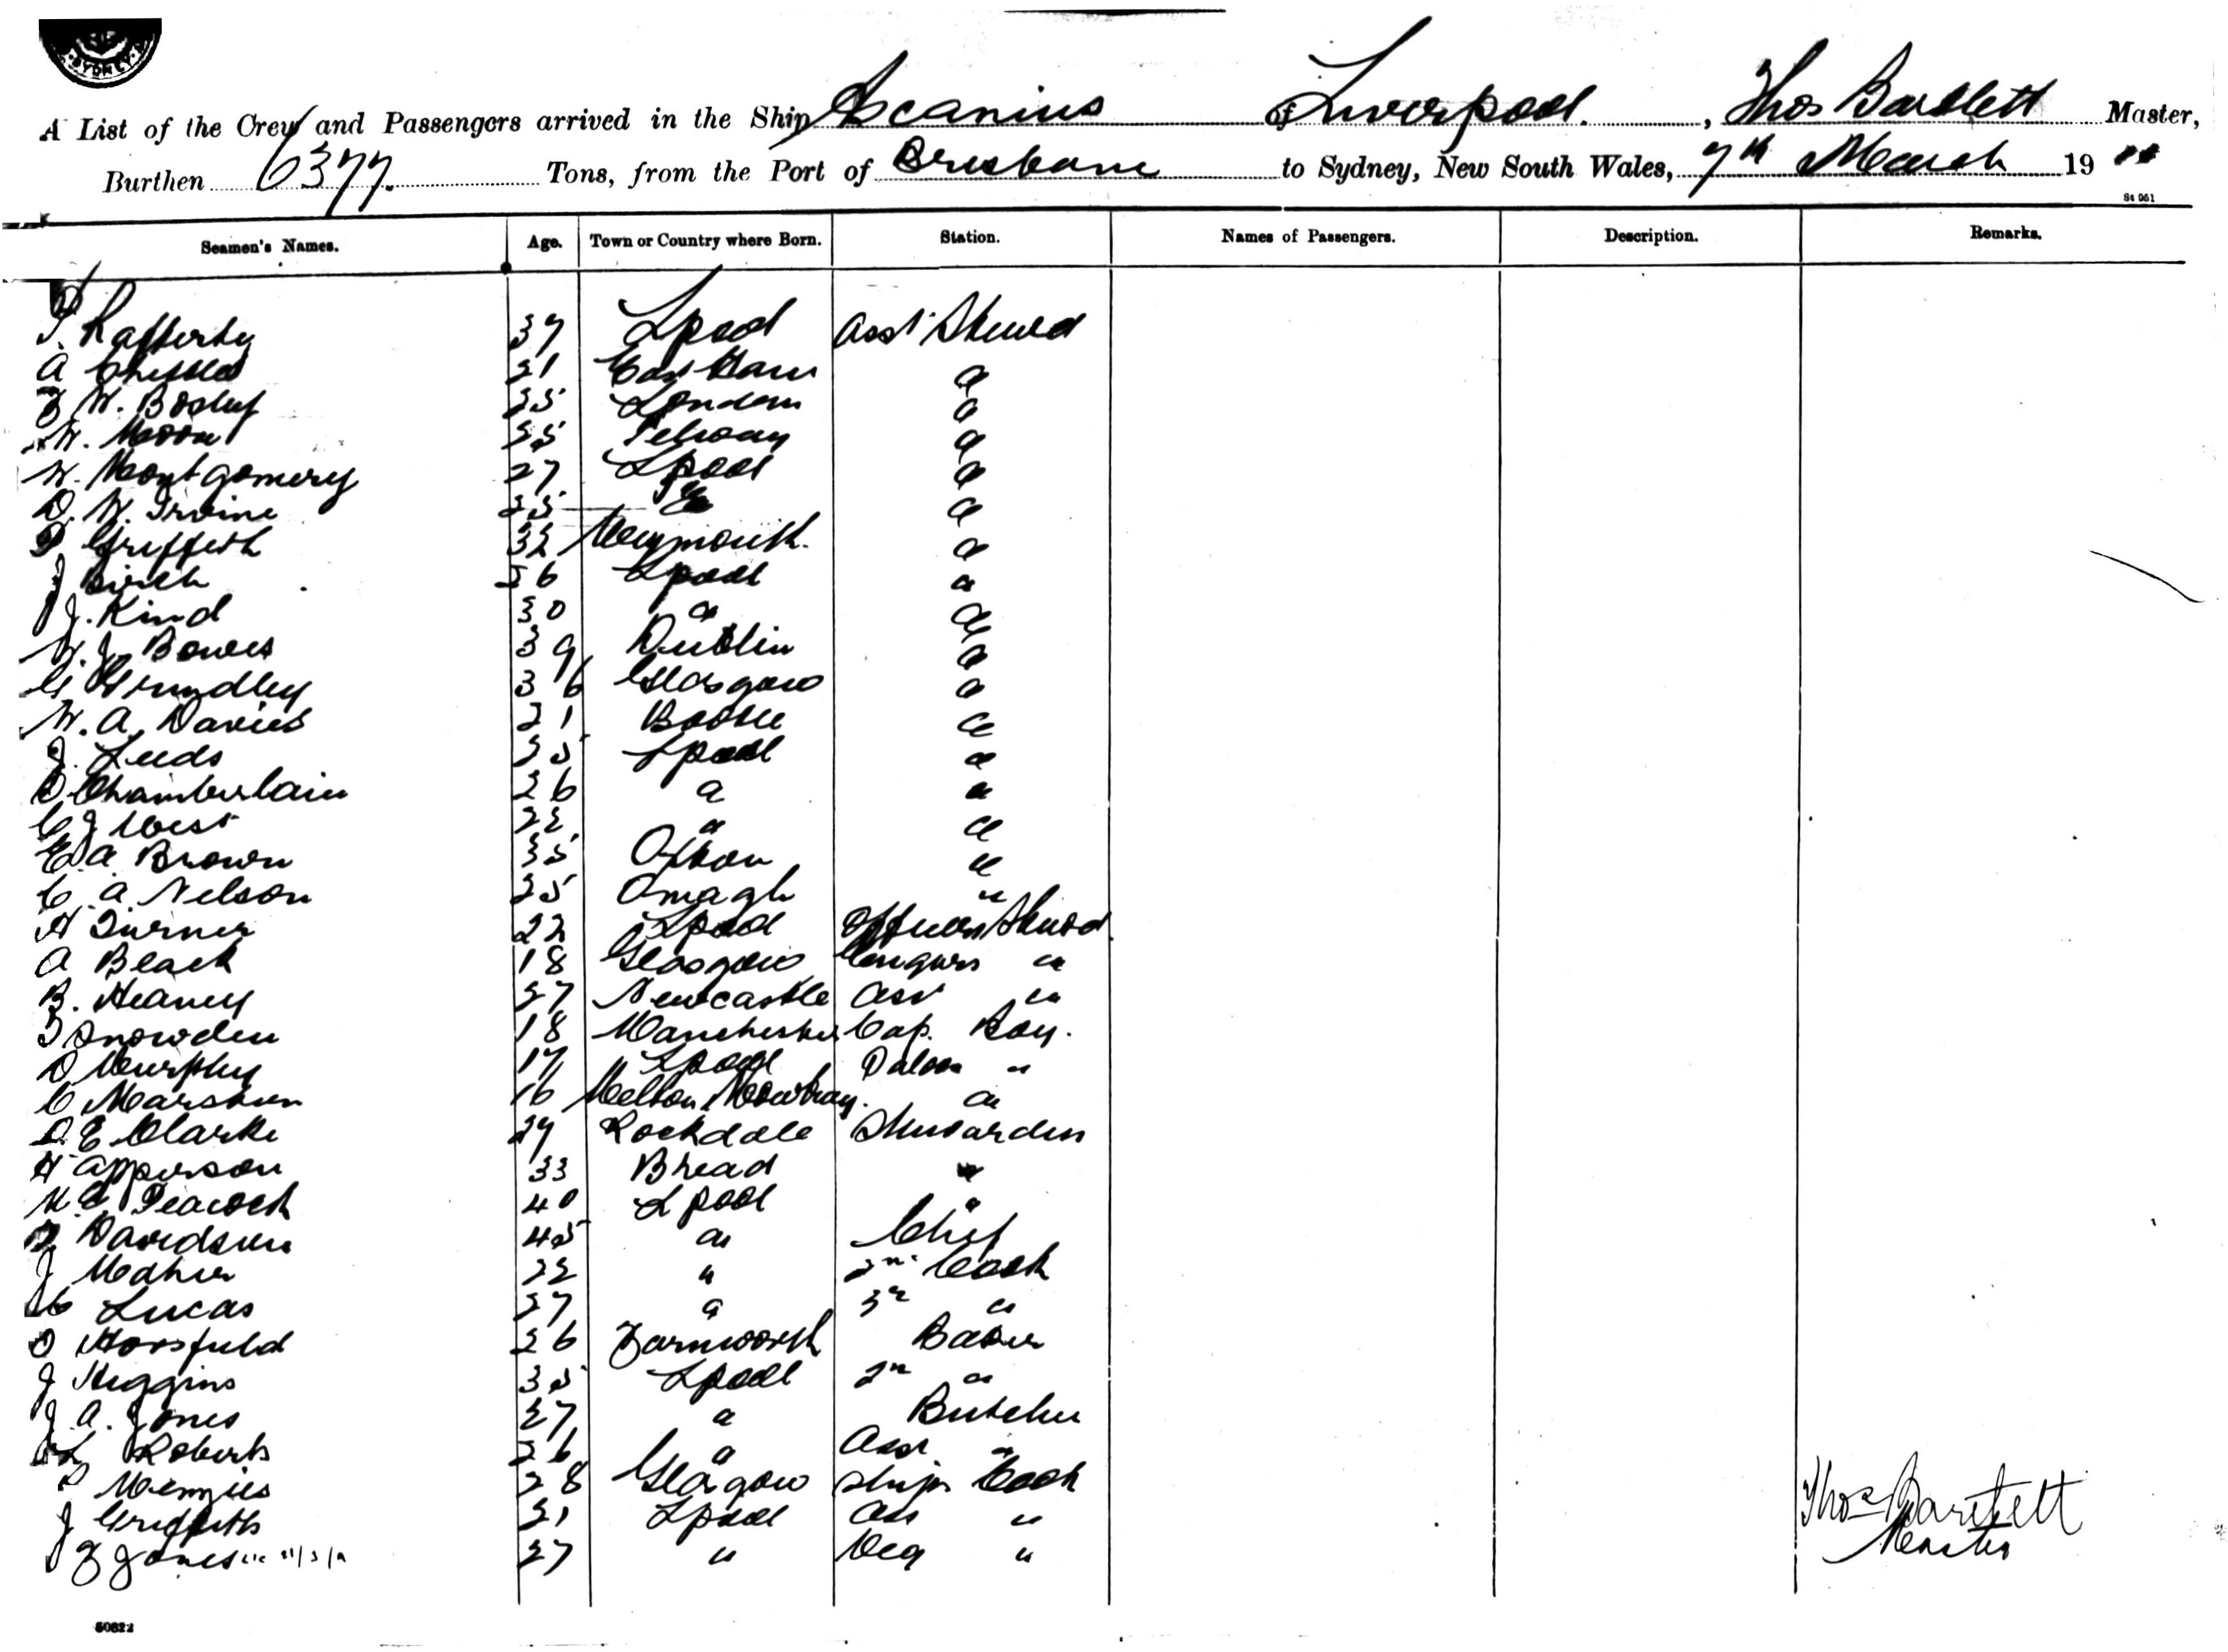 SYDNEY
A List of the Crew and Passengers arrived in the Ship Ascanius of Liverpool. , Thos Bartlett Master,
Burthen 6377. Tons, from the Port of Brisbane to Sydney, New South Wales, 7th March 19
St 061
Seamen's Names. Age. Town or Country where Born. Station. Names of Passengers. Description. Remarks.
Rafferty 37 Lpool Asst Steward
A 21 East Ham "
W. Bosley 35 London "
W. Moon "
W. Montgomery 27 Lpool "
D. W. Irvine "
Griffith 32 Weymouth. "
J Birch Lpool "
J. Kind 30 " "
W. J. Bowes 39 Dublin "
G Grundley 36 Glasgow "
W. A. Davies 21 Bootle "
J. Leeds Lpool "
Chamberlain 26 " "
C J West 22 " "
E A Brown 35 "
C. A. Nelson 25 Omagh "
H Turner 22 Lpool Officers Steward
A Black 18 Glasgow "
B. Heaney 27 Newcastle Asst "
Snowden 18 Manchester Cap. Boy.
D Murphy 17 Lpool Saloon "
C Marston 16 Melton Mowbray. "
E Clarke 29 Rockdale Stewardess
H Apperson 33 Bhead "
M E Peacock 40 Lpool "
Davidson 45 " Chef
J 22 " 2nd Cook
Lucas 27 " 3rd "
Horsfield 26 Farnworth Baker
J Higgins 35 Lpool 2nd "
J. A. Jones 27 " Butcher
L Roberts 26 " Asst "
Menzies 28 Glasgow Ships Cook
J Griffiths 21 Lpool Ass "
Jones 27 " Veg "
Thos Bartlett
Master
50822